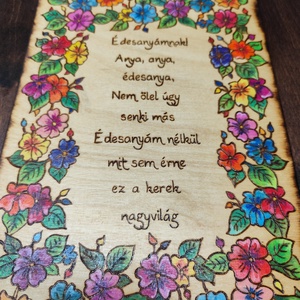 Édesanyámnak!
Anya, anya,
édesanya,
Nem ölel úgy
senki más
Édesanyám nélkül
mit sem érne
ez a kerek
nagyvilág